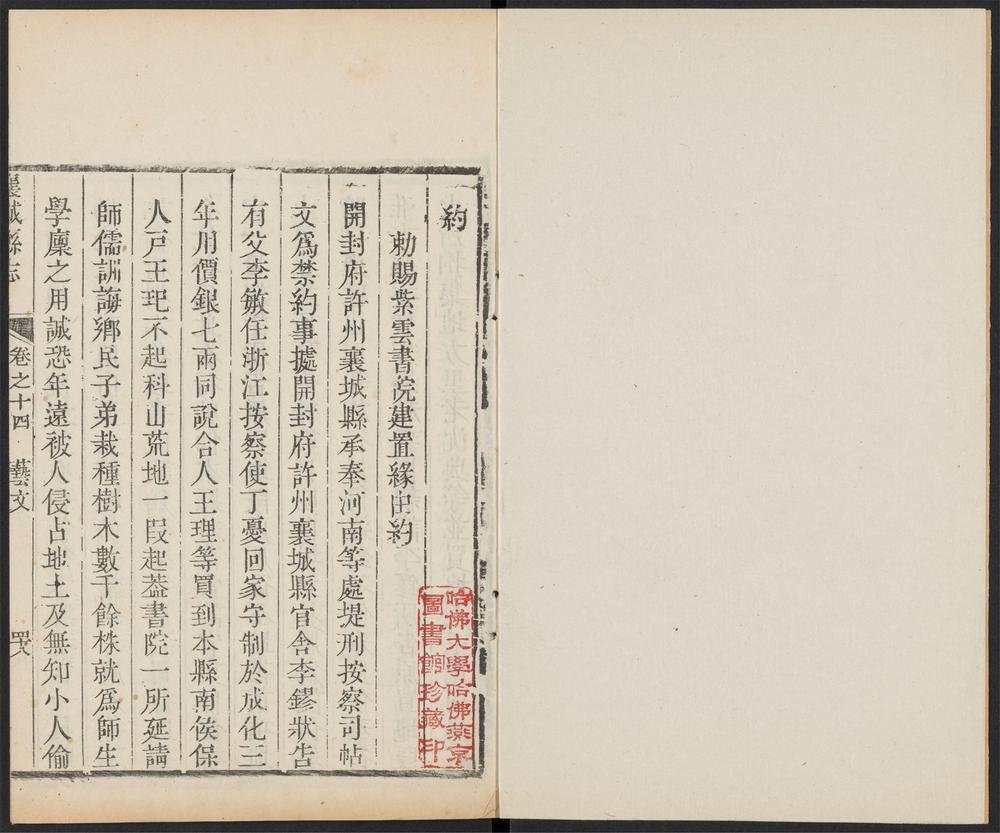 約
勅賜紫雲書院建置緣由約
一開封府許州襄城縣承奉河南等處提刑按察司帖
文爲禁約事據開封府許州襄城縣官舍李鏐狀告
有父李敏任浙江按察使丁憂回家守制於成化三
年用價銀七兩同說合人王理等買到本縣南侯保
人戸王玘不起科山荒地一段起葢書院一所延請
師儒訓誨鄉民子弟栽種樹木數千餘株就爲師生
學廩之用誠恐年遠被人侵占地土及無知小人偷
襄城縣志
卷之十四
藝文
哭
哈佛大學哈佛燕京
圖書館珍藏印